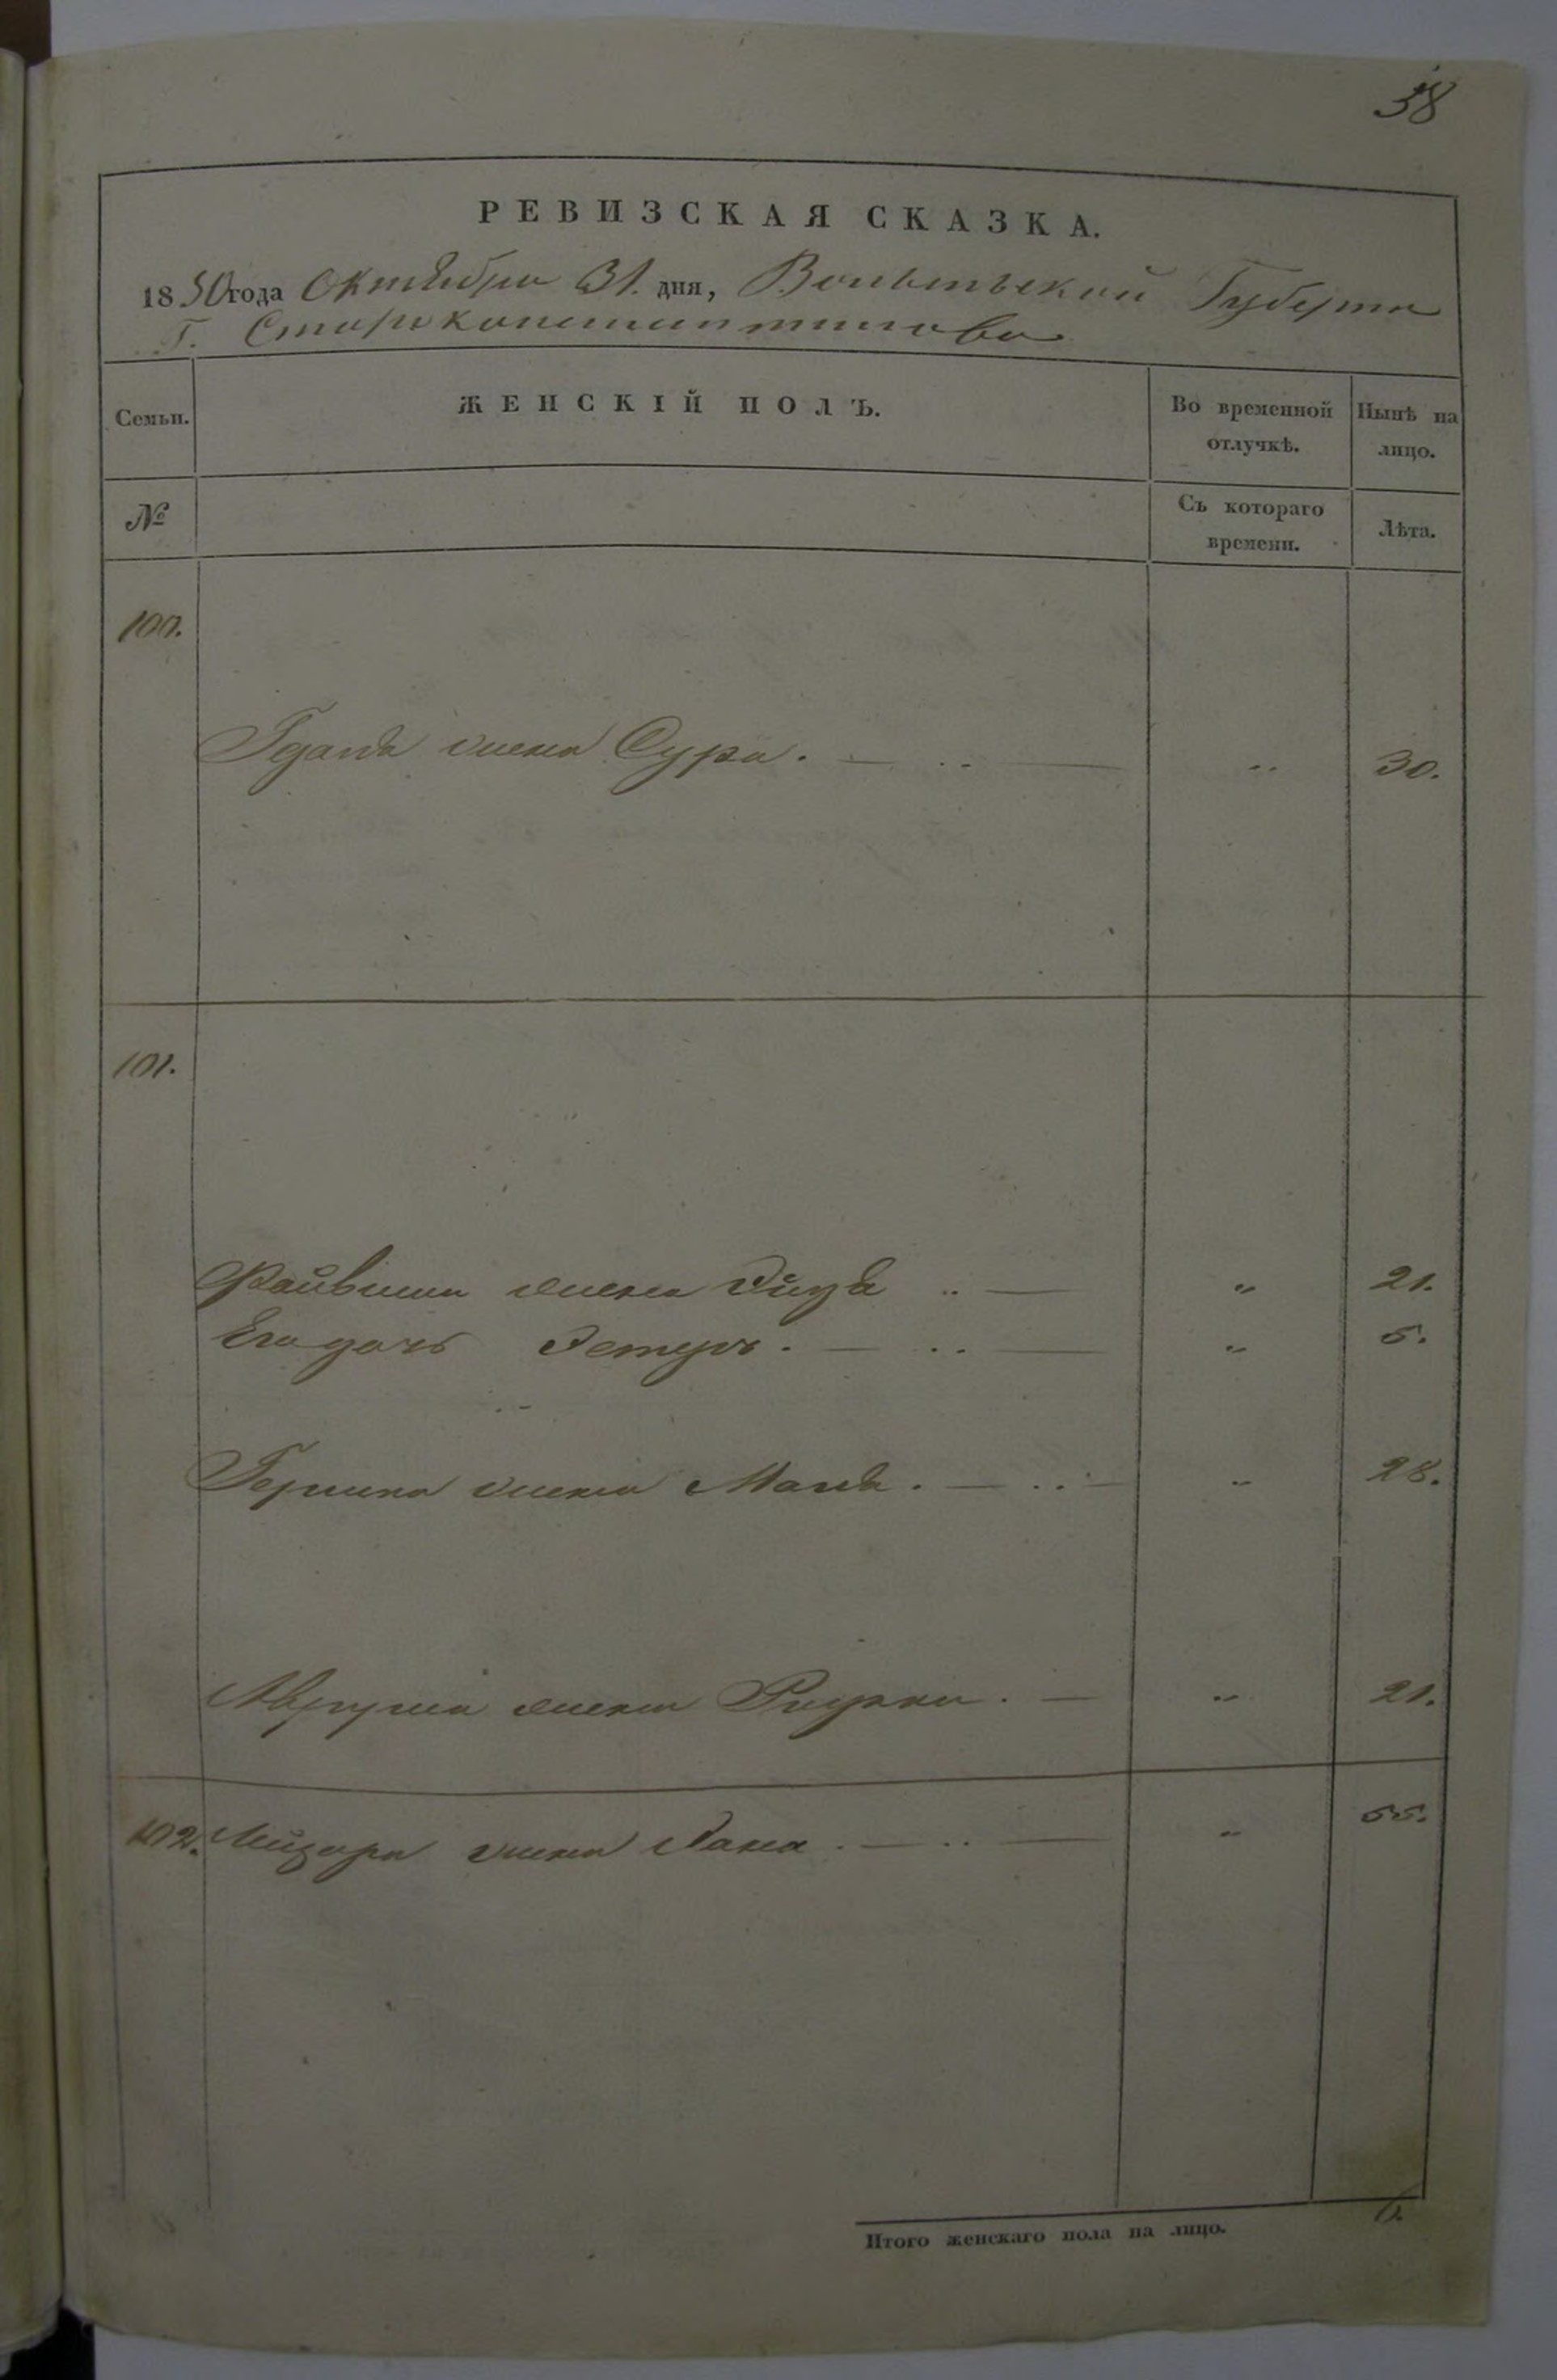 38
РЕВИЗСКАЯ СКАЗКА.
1850 года Октября 31. дня, Волынской Губерни
Г. Староконстантинова
Семьи. ЖЕНСКІЙ ПОЛЪ. Во временной отлучкѣ. Нынѣ на лицо.
№ Съ котораго времени. Лѣта.
100.
жена Сура. — .. — .. 30.
101.
Файвиша жена .. — „ 21.
Его дочь Эстеръ. — .. — „ 5.
Гершка жена Маля. — .. — „ 28.
жена . — „ 21.
102. жена . — .. — „ 55.
Итого женскаго пола на лицо. 6.